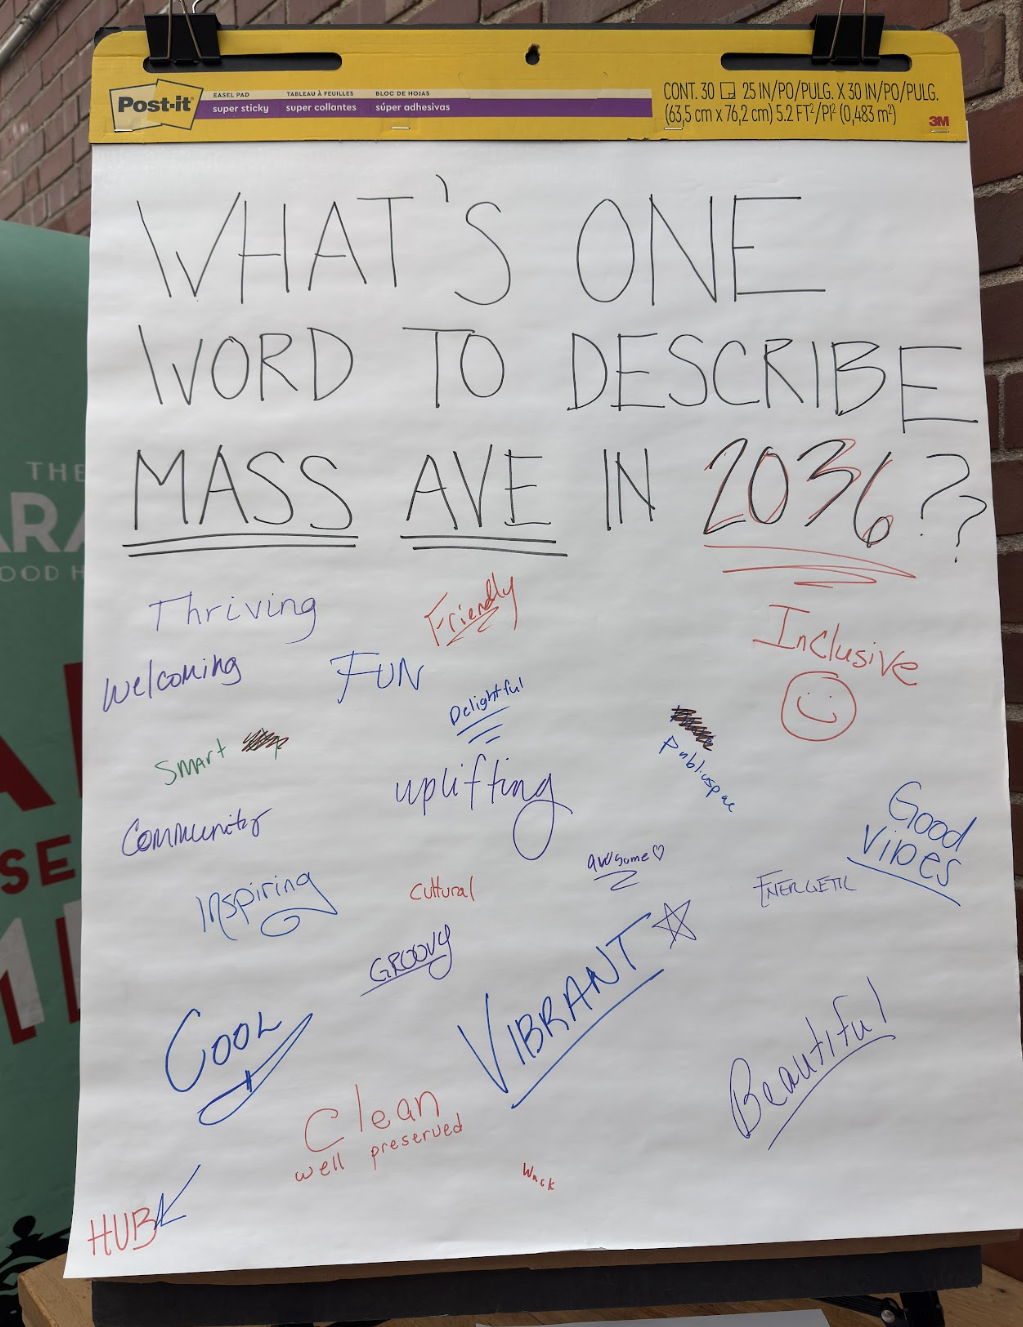 Post-it
EASEL PAD
super sticky
TABLEAU À FEUILLES
super collantes
BLOC DE HOJAS
súper adhesivas
CONT. 30 25 IN/PO/PULG. X 30 IN/PO/PULG.
(63,5 cm x 76,2 cm) 5.2 FT²/PI² (0,483 m²)
3M
WHAT'S ONE
WORD TO DESCRIBE
MASS AVE IN 2036??
Thriving
Friendly
Inclusive
Welcoming
FUN
Delightful
Smart
Publicspac
uplifting
Community
Good
Vibes
Inspiring
Cultural
awsome♡
ENERGETIC
GROOVY
VIBRANT
COOL
Beautiful
Clean
well preserved
Wack
HUB
THE
ARA
OOD H
SE